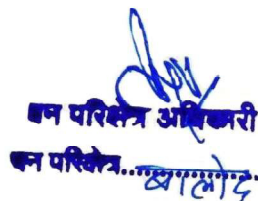 वन परिक्षेत्र अधिकारी
वन परिक्षेत्र..................बालोद